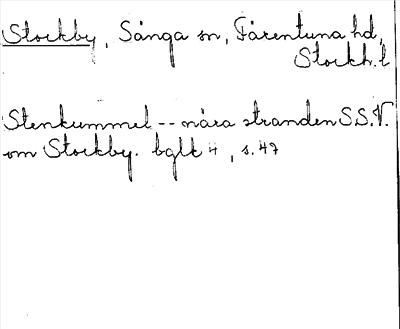 Stockby, Sånga sn, Färentuna hd,
Stockh. l
Stenkummel -- nära stranden S.S.V.
om Stockby. bglt 4, s. 47